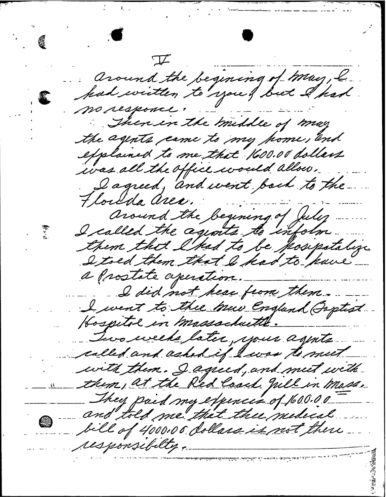 V
around the begining of may, I
had written to you & but I had
no responce.
Then in the middle of may
the agents came to my home, and
explained to me that 1600.00 dollars
was all the office would allow.
I agreed, and went back to the
Florida area.
around the begining of July
I called the agents to inform
them that I had to be hospitalize
I told them that I had to have
a Prostate operation.
I did not hear from them.
I went to thee New England Baptist
Hospital in Massachusetts.
Two weeks later, your agents
called and asked if I was to meet
with them. I agreed, and met with
them, at the Red Coach Grill in Mass.
They paid my expences of 1600.00
and told me that thee medical
bill of 4000.00 dollars is not there
responsibilty.